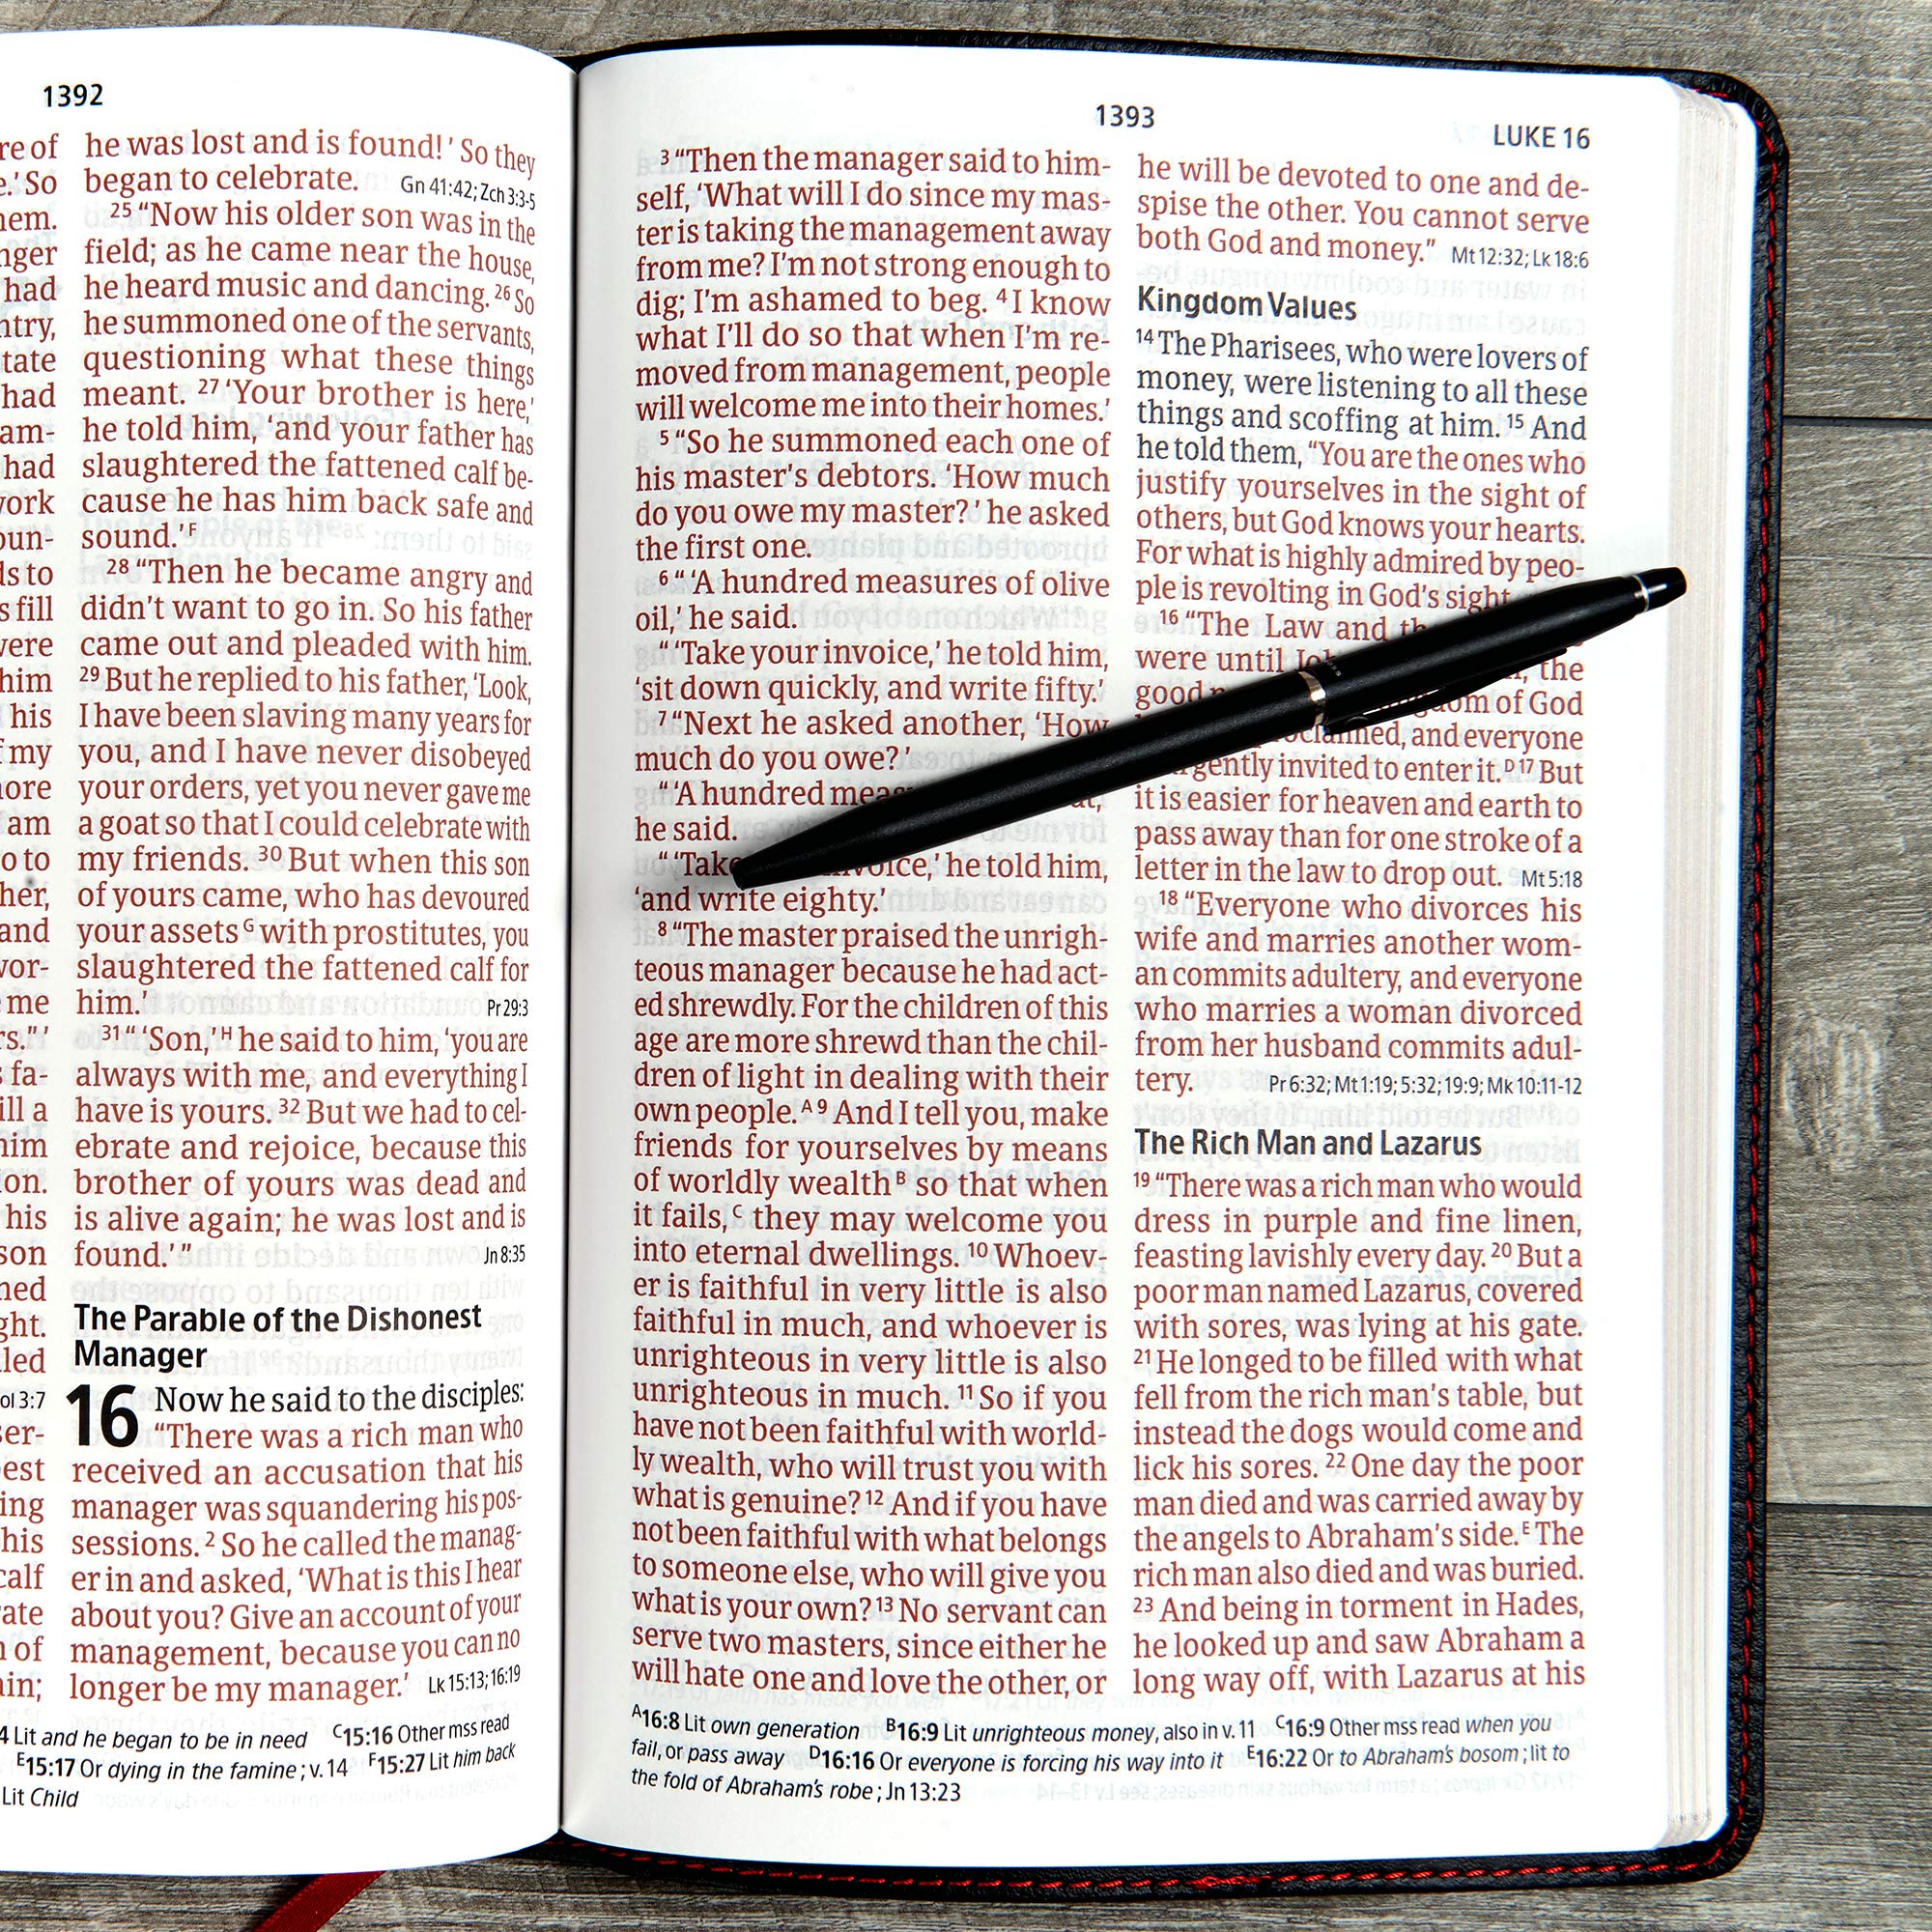 1392
re of
e.' So
hem.
nger
had
ntry,
tate
had
am-
had
work
oun-
ds to
s fill
were
him
his
f my
more
am
o to
her,
and
wor-
me
rs." '
s fa-
ill a
him
ion.
his
son
ned
ght.
led
ol 3:7
ser-
best
ing
his
calf
rate
n of
ain;
he was lost and is found!' So they
began to celebrate. Gn 41:42; Zch 3:3-5
25 “Now his older son was in the
field; as he came near the house,
he heard music and dancing. 26 So
he summoned one of the servants,
questioning what these things
meant. 27 ‘Your brother is here,’
he told him, ‘and your father has
slaughtered the fattened calf be-
cause he has him back safe and
sound.’ F
28 “Then he became angry and
didn’t want to go in. So his father
came out and pleaded with him.
29 But he replied to his father, ‘Look,
I have been slaving many years for
you, and I have never disobeyed
your orders, yet you never gave me
a goat so that I could celebrate with
my friends. 30 But when this son
of yours came, who has devoured
your assets G with prostitutes, you
slaughtered the fattened calf for
him.’ Pr 29:3
31 “ ‘Son,’ H he said to him, ‘you are
always with me, and everything I
have is yours. 32 But we had to cel-
ebrate and rejoice, because this
brother of yours was dead and
is alive again; he was lost and is
found.’ ” Jn 8:35
The Parable of the Dishonest
Manager
16 Now he said to the disciples:
“There was a rich man who
received an accusation that his
manager was squandering his pos-
sessions. 2 So he called the manag-
er in and asked, ‘What is this I hear
about you? Give an account of your
management, because you can no
longer be my manager.’ Lk 15:13; 16:19
4 Lit and he began to be in need C15:16 Other mss read
E15:17 Or dying in the famine; v. 14 F15:27 Lit him back
Lit Child
1393
LUKE 16
3 “Then the manager said to him-
self, ‘What will I do since my mas-
ter is taking the management away
from me? I’m not strong enough to
dig; I’m ashamed to beg. 4 I know
what I’ll do so that when I’m re-
moved from management, people
will welcome me into their homes.’
5 “So he summoned each one of
his master’s debtors. ‘How much
do you owe my master?’ he asked
the first one.
6 “ ‘A hundred measures of olive
oil,’ he said.
“ ‘Take your invoice,’ he told him,
‘sit down quickly, and write fifty.’
7 “Next he asked another, ‘How
much do you owe?’
“ ‘A hundred
he said.
“ ‘Take he told him,
‘and write eighty.’
8 “The master praised the unrigh-
teous manager because he had act-
ed shrewdly. For the children of this
age are more shrewd than the chil-
dren of light in dealing with their
own people. A 9 And I tell you, make
friends for yourselves by means
of worldly wealth B so that when
it fails, C they may welcome you
into eternal dwellings. 10 Whoev-
er is faithful in very little is also
faithful in much, and whoever is
unrighteous in very little is also
unrighteous in much. 11 So if you
have not been faithful with world-
ly wealth, who will trust you with
what is genuine? 12 And if you have
not been faithful with what belongs
to someone else, who will give you
what is your own? 13 No servant can
serve two masters, since either he
will hate one and love the other, or
he will be devoted to one and de-
spise the other. You cannot serve
both God and money.” Mt 12:32; Lk 18:6
Kingdom Values
14 The Pharisees, who were lovers of
money, were listening to all these
things and scoffing at him. 15 And
he told them, “You are the ones who
justify yourselves in the sight of
others, but God knows your hearts.
For what is highly admired by peo-
ple is revolting in God’s sight
16 “The Law and
were until the
good of God
and everyone
invited to enter it. D 17 But
it is easier for heaven and earth to
pass away than for one stroke of a
letter in the law to drop out. Mt 5:18
18 “Everyone who divorces his
wife and marries another wom-
an commits adultery, and everyone
who marries a woman divorced
from her husband commits adul-
tery. Pr 6:32; Mt 1:19; 5:32; 19:9; Mk 10:11-12
The Rich Man and Lazarus
19 “There was a rich man who would
dress in purple and fine linen,
feasting lavishly every day. 20 But a
poor man named Lazarus, covered
with sores, was lying at his gate.
21 He longed to be filled with what
fell from the rich man’s table, but
instead the dogs would come and
lick his sores. 22 One day the poor
man died and was carried away by
the angels to Abraham’s side. E The
rich man also died and was buried.
23 And being in torment in Hades,
he looked up and saw Abraham a
long way off, with Lazarus at his
A16:8 Lit own generation B16:9 Lit unrighteous money, also in v. 11 C16:9 Other mss read when you
fail, or pass away D16:16 Or everyone is forcing his way into it E16:22 Or to Abraham’s bosom; lit to
the fold of Abraham’s robe; Jn 13:23